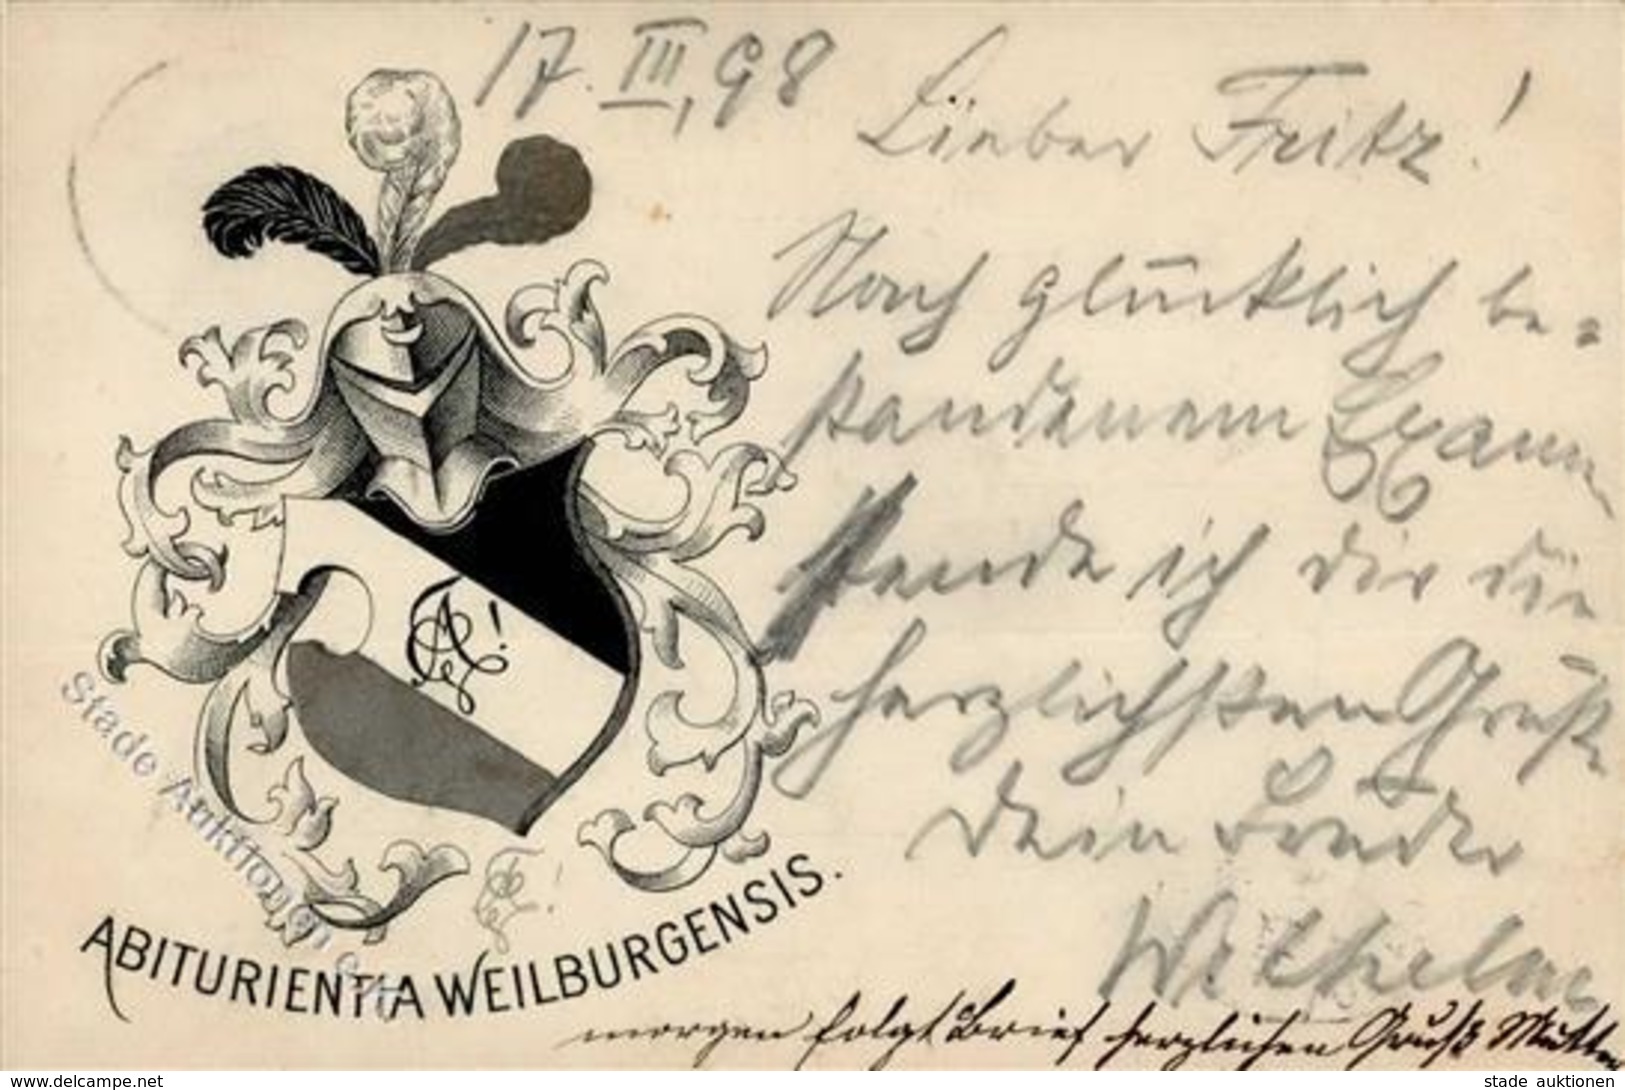 17. III, 98
Lieber Fritz!
Nach glücklich be=
standenem Examen
sende ich dir die
herzlichsten Grüße
Dein Bruder
Wilhelm
morgen folgt Brief herzlichen Gruß Mutter
A!
ABITURIENTIA WEILBURGENSIS.
Stade Auktionen
www.delcampe.net
stade auktionen